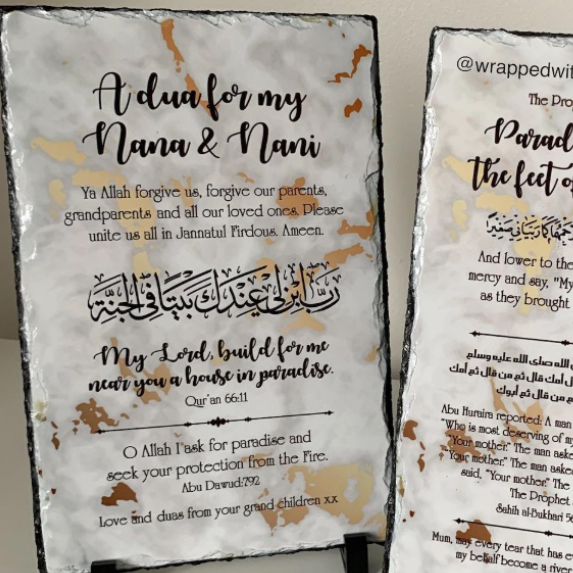 A dua for my
Nana & Nani
Ya Allah forgive us, forgive our parents,
grandparents and all our loved ones. Please
unite us all in Jannatul Firdous. Ameen.
رَبِّ ابْنِ لِي عِنْدَكَ بَيْتًا فِي الْجَنَّةِ
My Lord, build for me
near you a house in paradise.
Qur'an 66:11
O Allah I ask for paradise and
seek your protection from the Fire.
Abu Dawud:792
Love and duas from your grand children xx
@wrappedwit
The Pro
Parad
the feet o
And lower to the
mercy and say, "My
as they brought
الله صلى الله عليه وسلم
أمك قال ثم من قال ثم أمك
من قال ثم أبوك
Abu Huraira reported: A man
"Who is most deserving of my
"Your mother." The man asked
"Your mother." The man asked
said, "Your mother." The
The Prophet
Sahih al-Bukhari 5
Mum, may every tear that has e
my behalf become a river